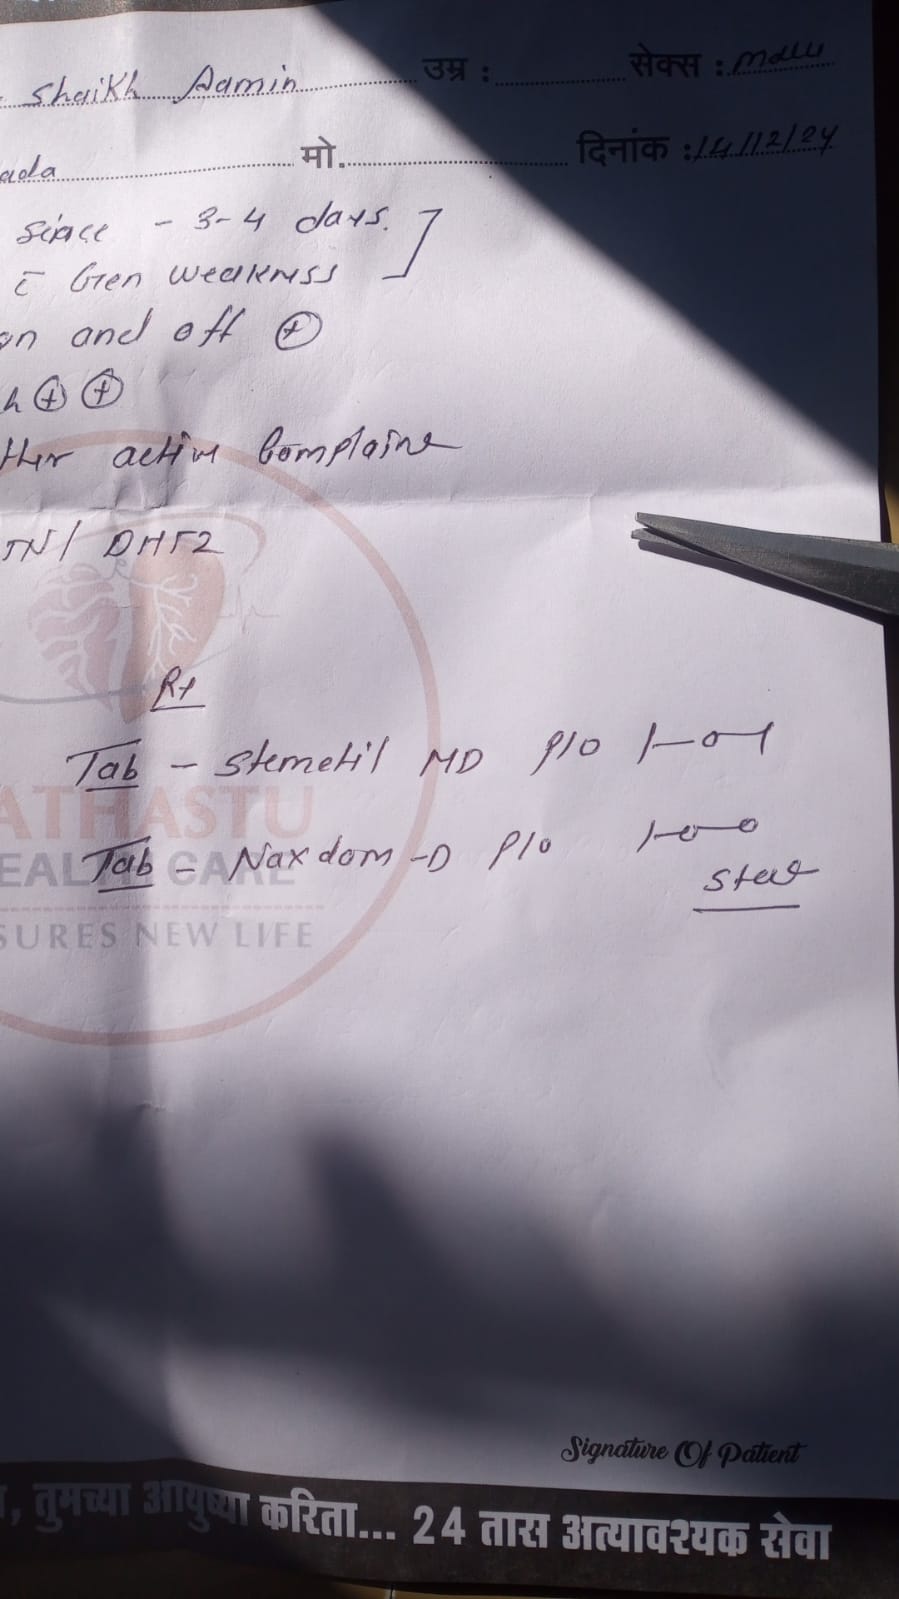 Shaikh Aamin उम्र : सेक्स : male
ada मो. दिनांक : 14/12/24
since - 3-4 days.
c̄ Gen weakness
on and off ⊕
h ⊕ ⊕
ther active Complaine
TN/ DHT2
Rx
Tab - Stemetil MD p/o 1-0-1
ATHASTU
Tab - Naxdom-D p/o 1-0-0
EALTH CARE
Stat
SURES NEW LIFE
Signature Of Patient
, तुमच्या आयुष्या करिता... 24 तास अत्यावश्यक सेवा